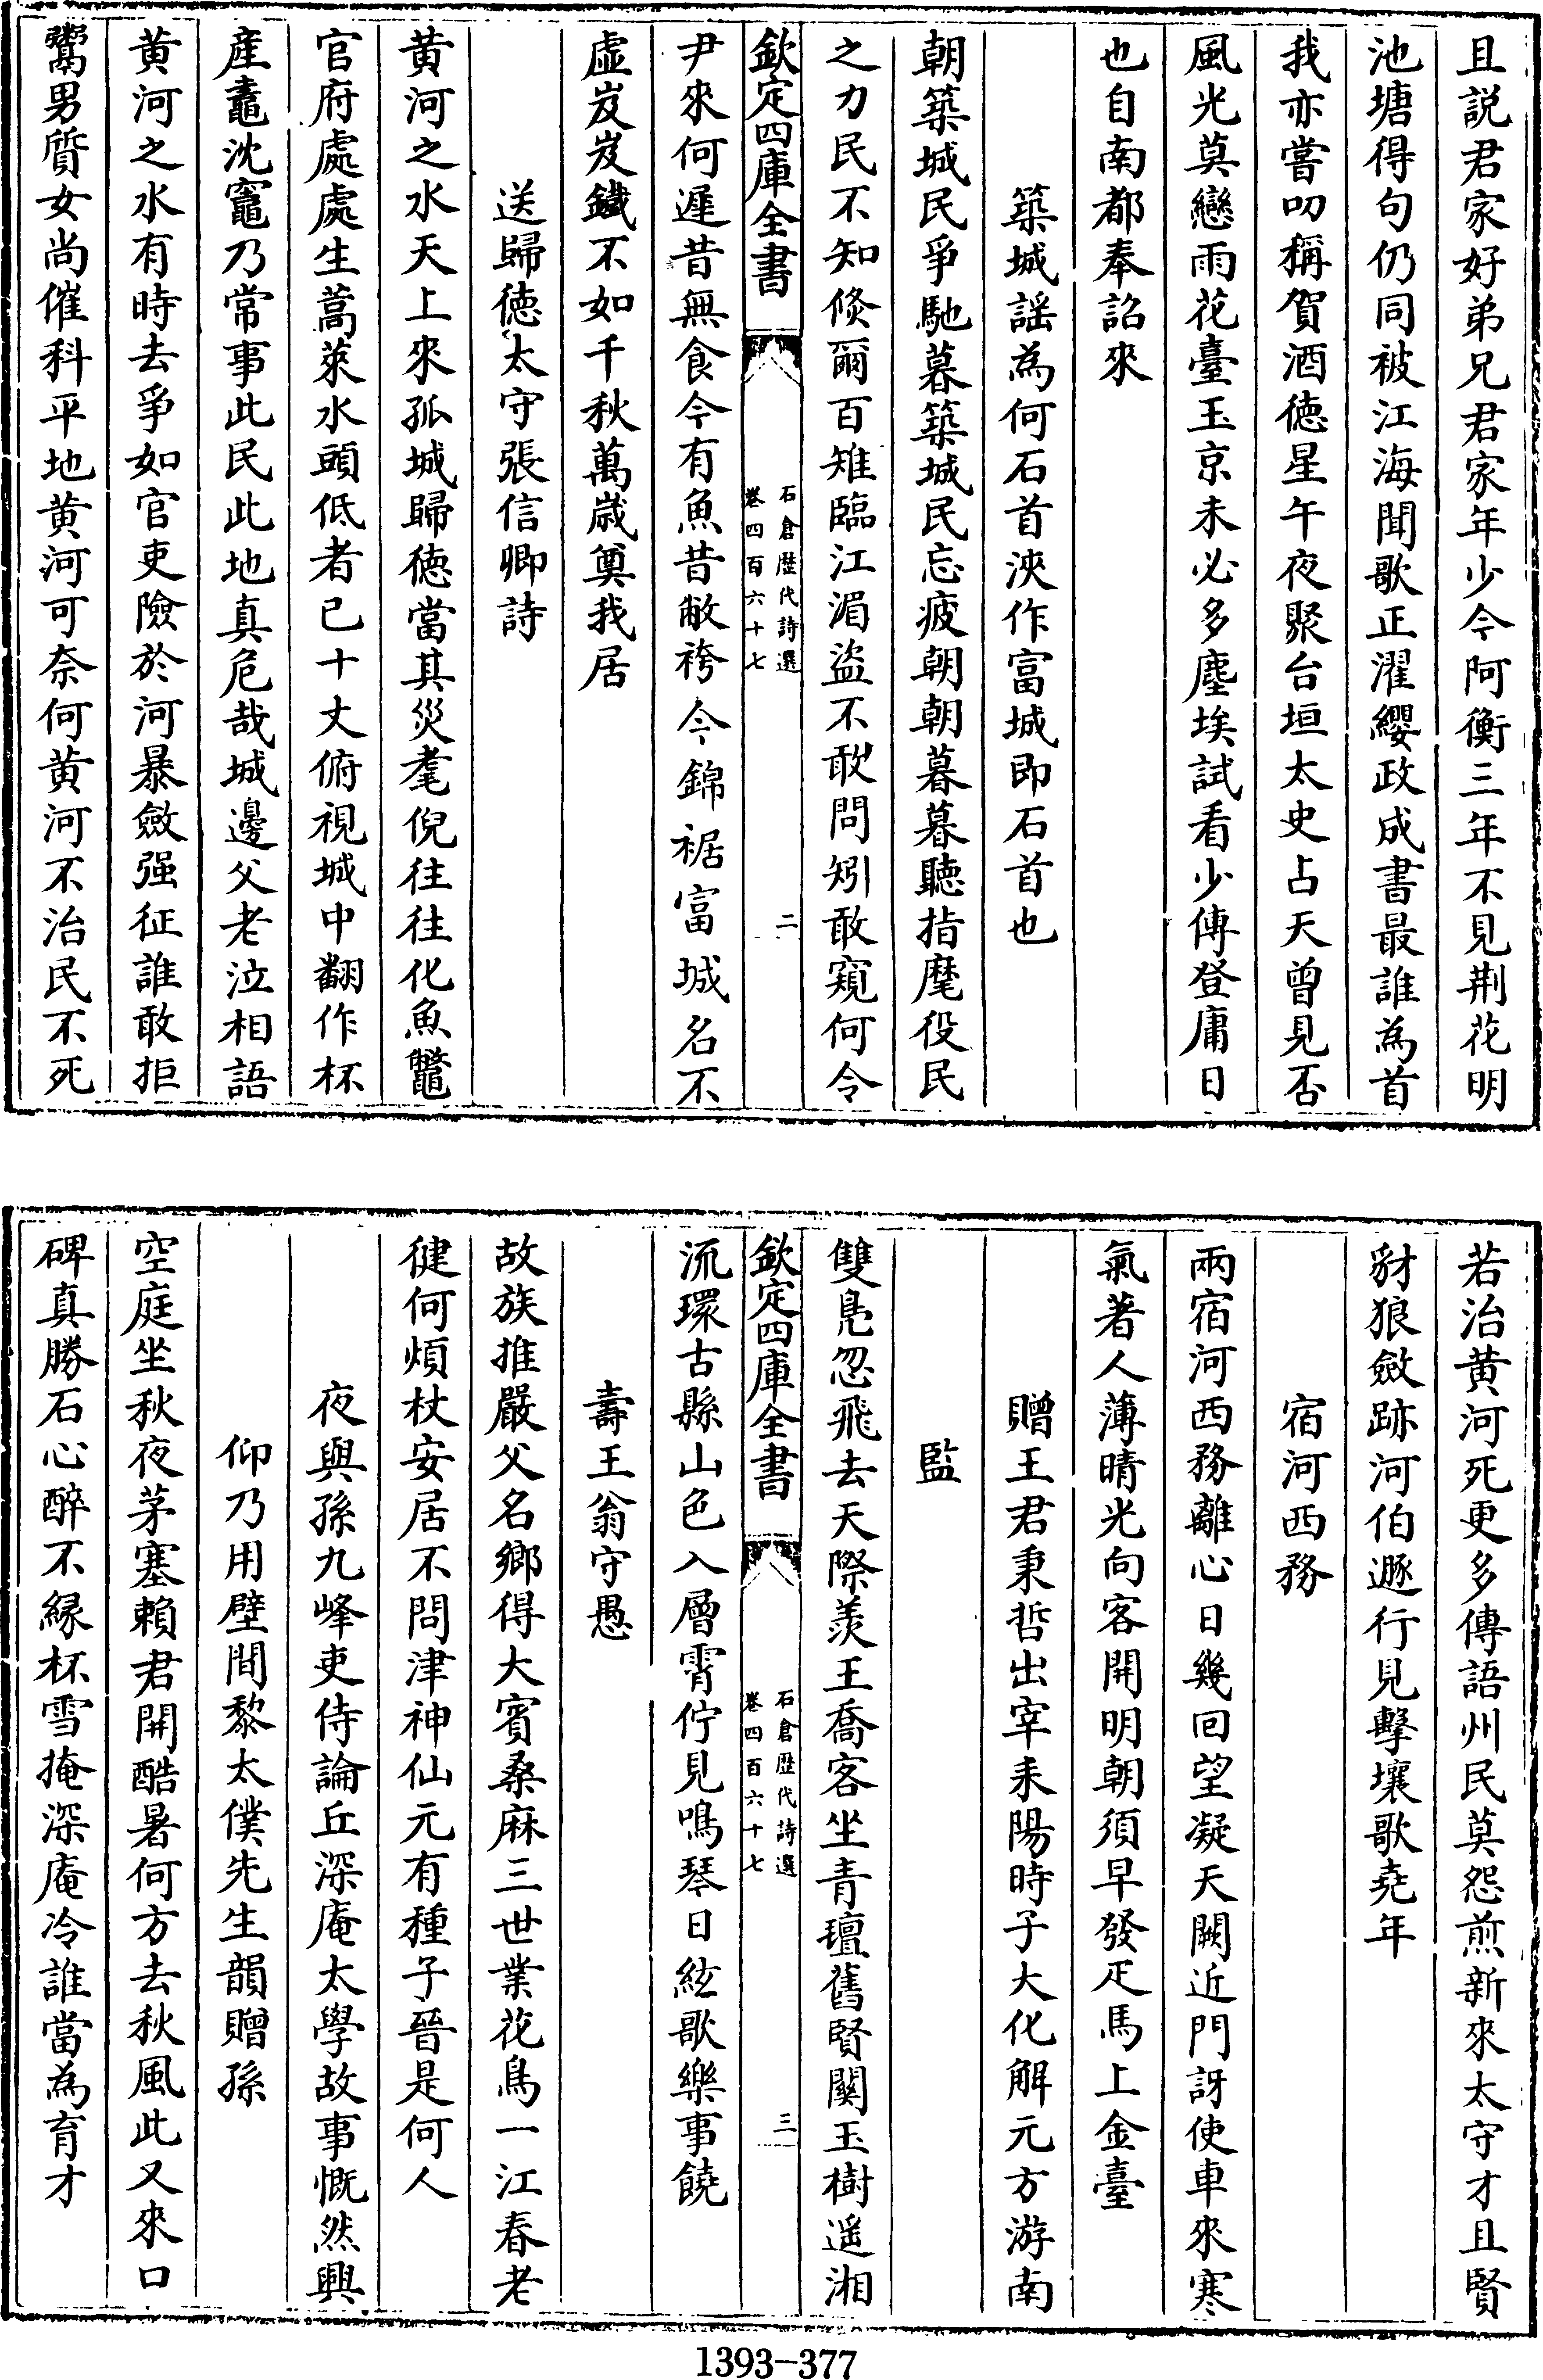 且説君家好弟兄君家年少今阿衡三年不見荆花明
池塘得句仍同被江海聞歌正濯纓政成書最誰為首
我亦嘗叨稱賀酒徳星午夜聚台垣太史占天曾見否
風光莫戀雨花臺玉京未必多塵埃試看少傅登庸日
也自南都奉詔來
築城謡為何石首浹作富城即石首也
朝築城民爭馳暮築城民忘疲朝朝暮暮聽指麾役民
之力民不知倐爾百雉臨江湄盜不敢問矧敢窺何令
欽定四庫全書
石倉歴代詩選
卷四百六十七
二
尹來何遲昔無食今有魚昔敝袴今錦裾富城名不
虚岌岌鐵不如千秋萬歲奠我居
送歸徳太守張信卿詩
黄河之水天上來孤城歸徳當其災耄倪往往化魚鼈
官府處處生蒿萊水頭低者已十丈俯視城中翻作杯
産鼃沈竈乃常事此民此地真危哉城邊父老泣相語
黄河之水有時去爭如官吏險於河暴斂强征誰敢拒
鬻男質女尚催科平地黄河可奈何黄河不治民不死
若治黄河死更多傳語州民莫怨煎新來太守才且賢
豺狼斂跡河伯遯行見擊壤歌堯年
宿河西務
兩宿河西務離心日幾回望凝天闕近門訝使車來寒
氣著人薄晴光向客開明朝須早發疋馬上金臺
贈王君秉哲出宰耒陽時子大化解元方游南
監
雙鳬忽飛去天際羨王喬客坐青璮舊賢闗玉樹遥湘
欽定四庫全書
石倉歴代詩選
卷四百六十七
三
流環古縣山色入層霄佇見鳴琴日絃歌樂事饒
壽王翁守愚
故族推嚴父名鄉得大賓桑麻三世業花鳥一江春老
健何煩杖安居不問津神仙元有種子晉是何人
夜與孫九峰吏侍論丘深庵太學故事慨然興
仰乃用壁間黎太僕先生韻贈孫
空庭坐秋夜茅塞賴君開酷暑何方去秋風此又來口
碑真勝石心醉不縁杯雪掩深庵冷誰當為育才
1393-377